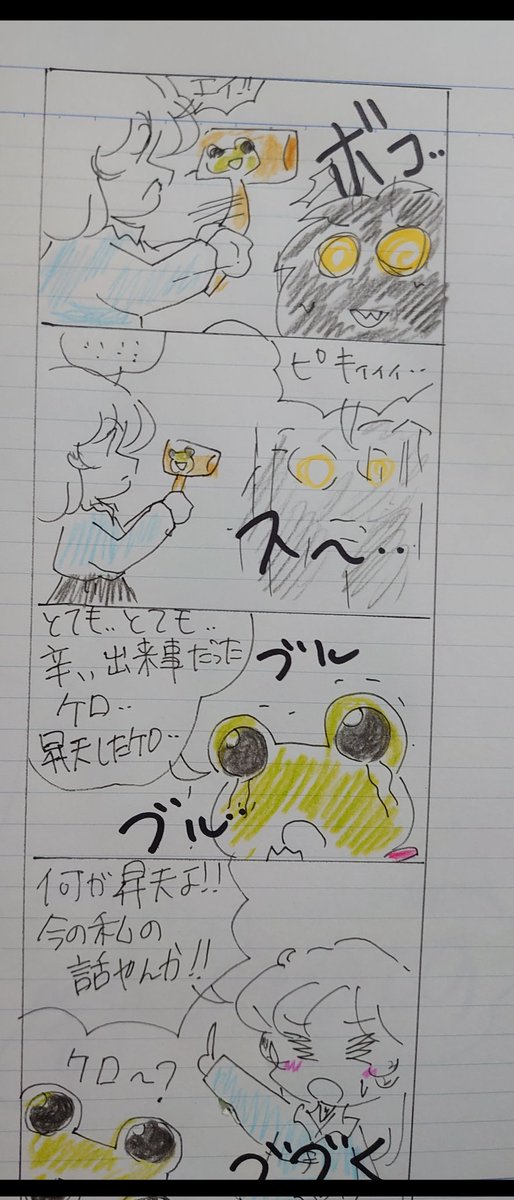 エイ!!
ボコ..
.....
ピキィィィ..
スー..
とても..とても..
辛い出来事だった
ケロ..
昇天したケロ..
ブル
ブル..
何が昇天よ!!
今の私の
話やんか!!
ケロ〜?
つづく